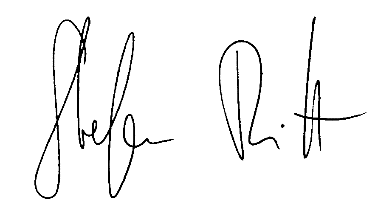 Stefan Ritt